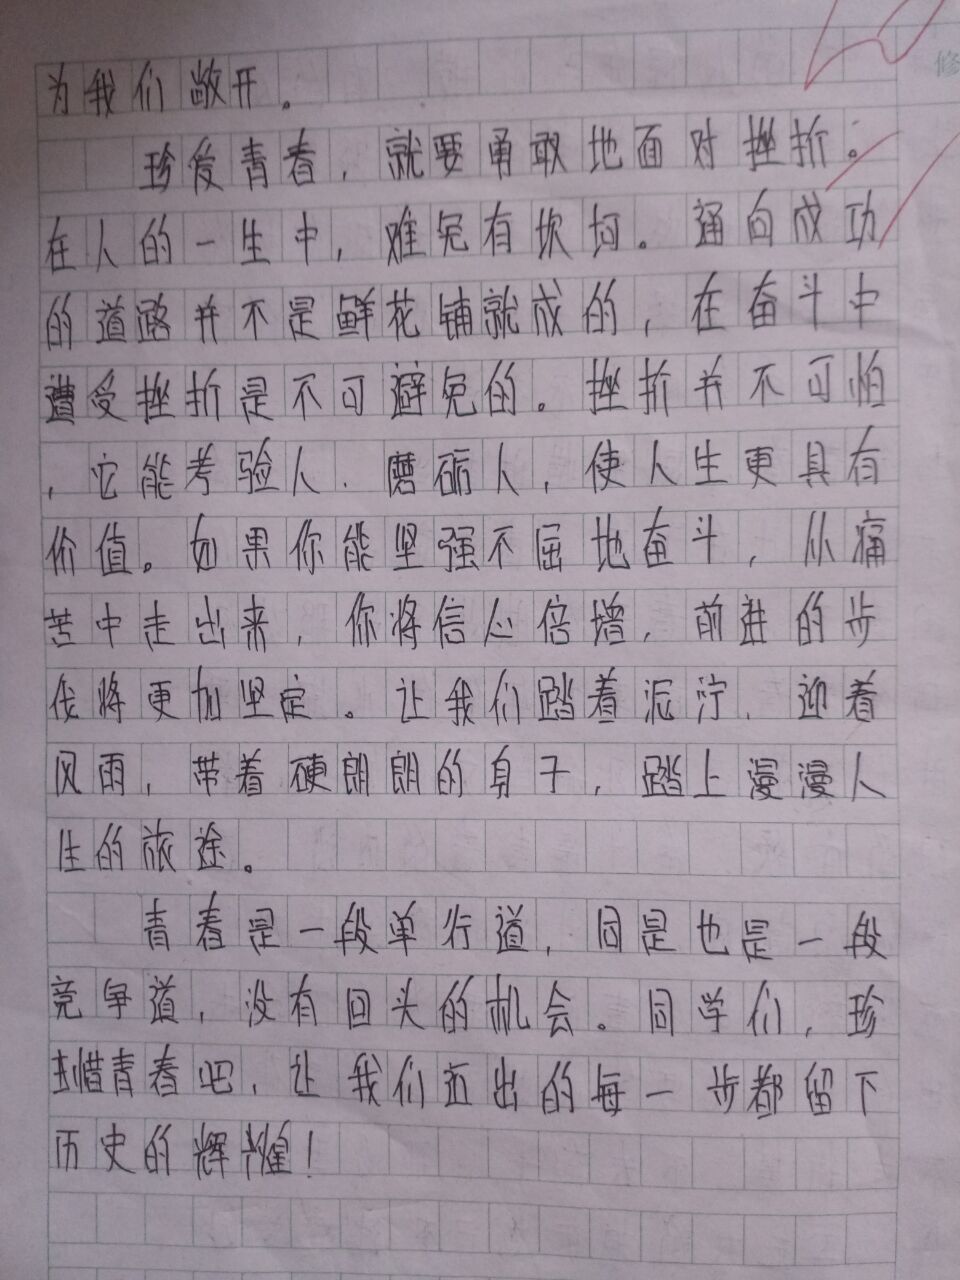 为我们敞开。
珍爱青春，就要勇敢地面对挫折。
在人的一生中，难免有坎坷。通向成功
的道路并不是鲜花铺就成的，在奋斗中
遭受挫折是不可避免的。挫折并不可怕
，它能考验人、磨砺人，使人生更具有
价值。如果你能坚强不屈地奋斗，从痛
苦中走出来，你将信心倍增，前进的步
伐将更加坚定。让我们踏着泥泞，迎着
风雨，带着硬朗朗的身子，踏上漫漫人
生的旅途。
青春是一段单行道，同是也是一段
竞争道，没有回头的机会。同学们，珍
惜青春吧，让我们迈出的每一步都留下
历史的辉煌！
修